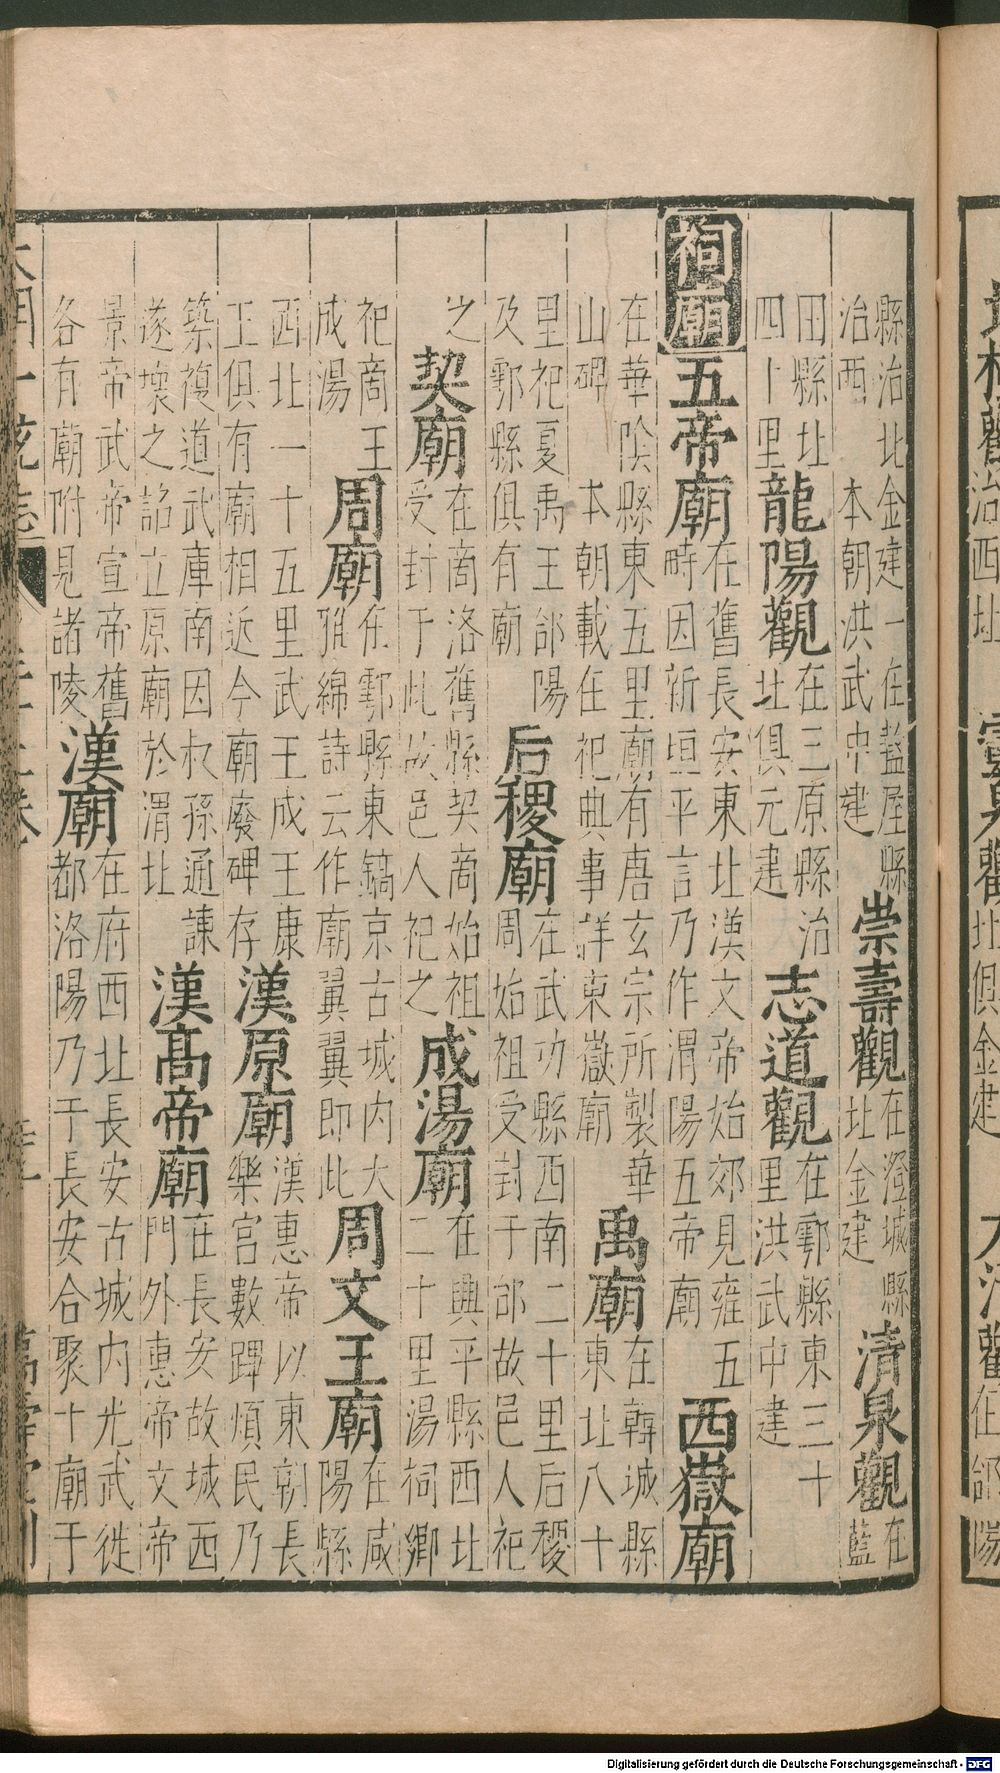 縣治北金建一在盩厔縣
治西　本朝洪武中建
崇壽觀
在澄城縣
北金建
清泉觀
在藍
田縣北
四十里
龍陽觀
在三原縣治
北俱元建
志道觀
在鄠縣東三十
里洪武中建
祠廟
五帝廟
在舊長安東北漢文帝始郊見雍五
畤因新垣平言乃作渭陽五帝廟
西嶽廟
在華陰縣東五里廟有唐玄宗所製華
山碑　本朝載在祀典事詳東嶽廟
禹廟
在韓城縣
東北八十
里祀夏禹王郃陽
及鄠縣俱有廟
后稷廟
在武功縣西南二十里后稷
周始祖受封于邰故邑人祀
之
契廟
在商洛舊縣契商始祖
受封于此故邑人祀之
成湯廟
在興平縣西北
二十里湯祠鄉
祀商王
成湯
周廟
在鄠縣東鎬京古城內大
雅綿詩云作廟翼翼即此
周文王廟
在咸
陽縣
西北一十五里武王成王康
王俱有廟相近今廟廢碑存
漢原廟
漢惠帝以東朝長
樂宮數蹕煩民乃
築複道武庫南因叔孫通諫
遂壞之詔立原廟於渭北
漢高帝廟
在長安故城西
門外惠帝文帝
景帝武帝宣帝舊
各有廟附見諸陵
漢廟
在府西北長安古城內光武徙
都洛陽乃于長安合聚十廟于
大明一統志
萬壽堂刊
Digitalisierung gefördert durch die Deutsche Forschungsgemeinschaft - DFG